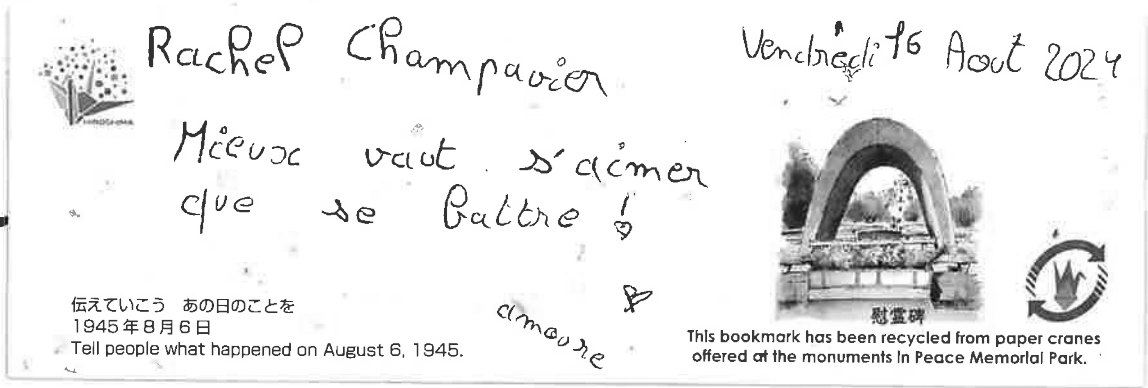 Rachel Champavier
Vendredi 16 Aout 2024
HIROSHIMA
Mieux vaut s'aimer
que se battre !
amoure
伝えていこう あの日のことを
1945年8月6日
Tell people what happened on August 6, 1945.
慰霊碑
This bookmark has been recycled from paper cranes
offered at the monuments in Peace Memorial Park.